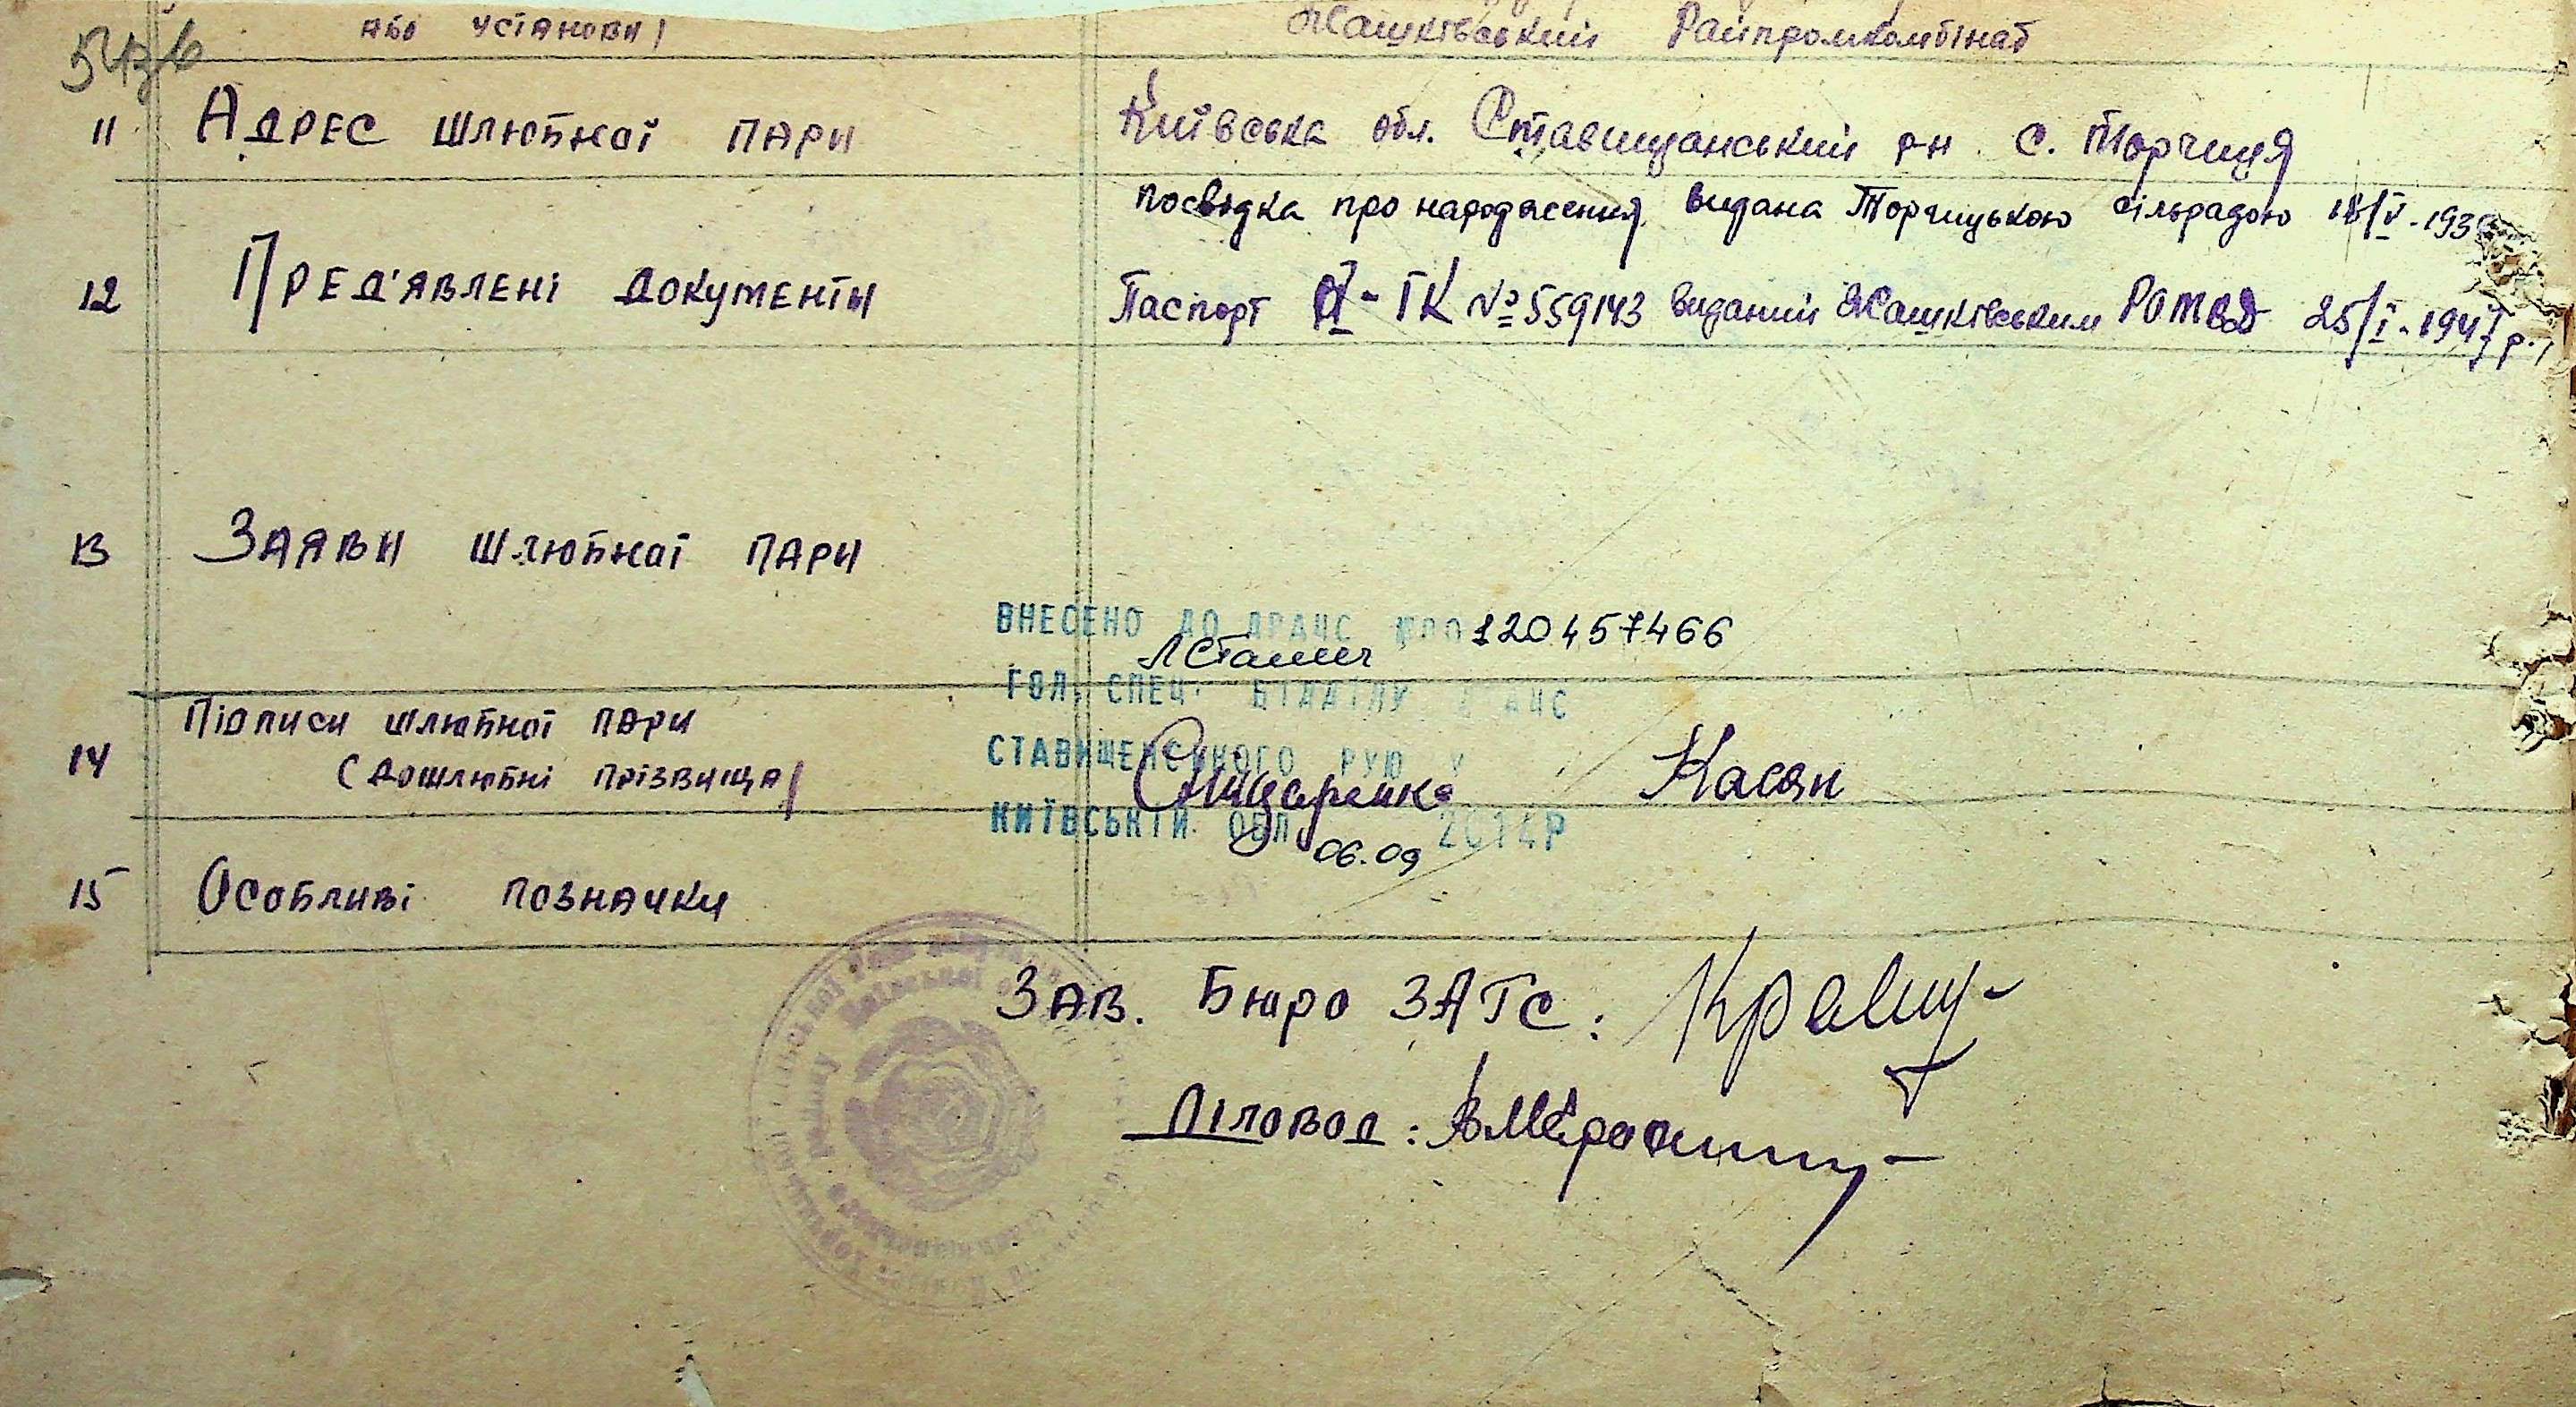 або установи)
Жашківський Райпромкомбінат
11 Адрес шлюбної пари
Київська обл. Ставищанський р-н с. Торчиця
Посвідка про народження видана Торчицькою сільрадою 18/V-193
12 Пред'явлені документи
Паспорт ІК № 559143 виданий Жашківським РОМВД 25/I-1947 р.,
13 Заяви шлюбної пари
ВНЕСЕНО ДО ДРАЦС 120457466
ГОЛ. СПЕЦ. ВІДДІЛУ ДРАЦС
14 Підписи шлюбної пари
(дошлюбні прізвища)
СТАВИЩЕНСЬКОГО РУЮ У
Касян
КИЇВСЬКІЙ ОБЛ 2014Р
06.09
15 Особливі позначки
Зав. Бюро ЗАГС:
Діловод: